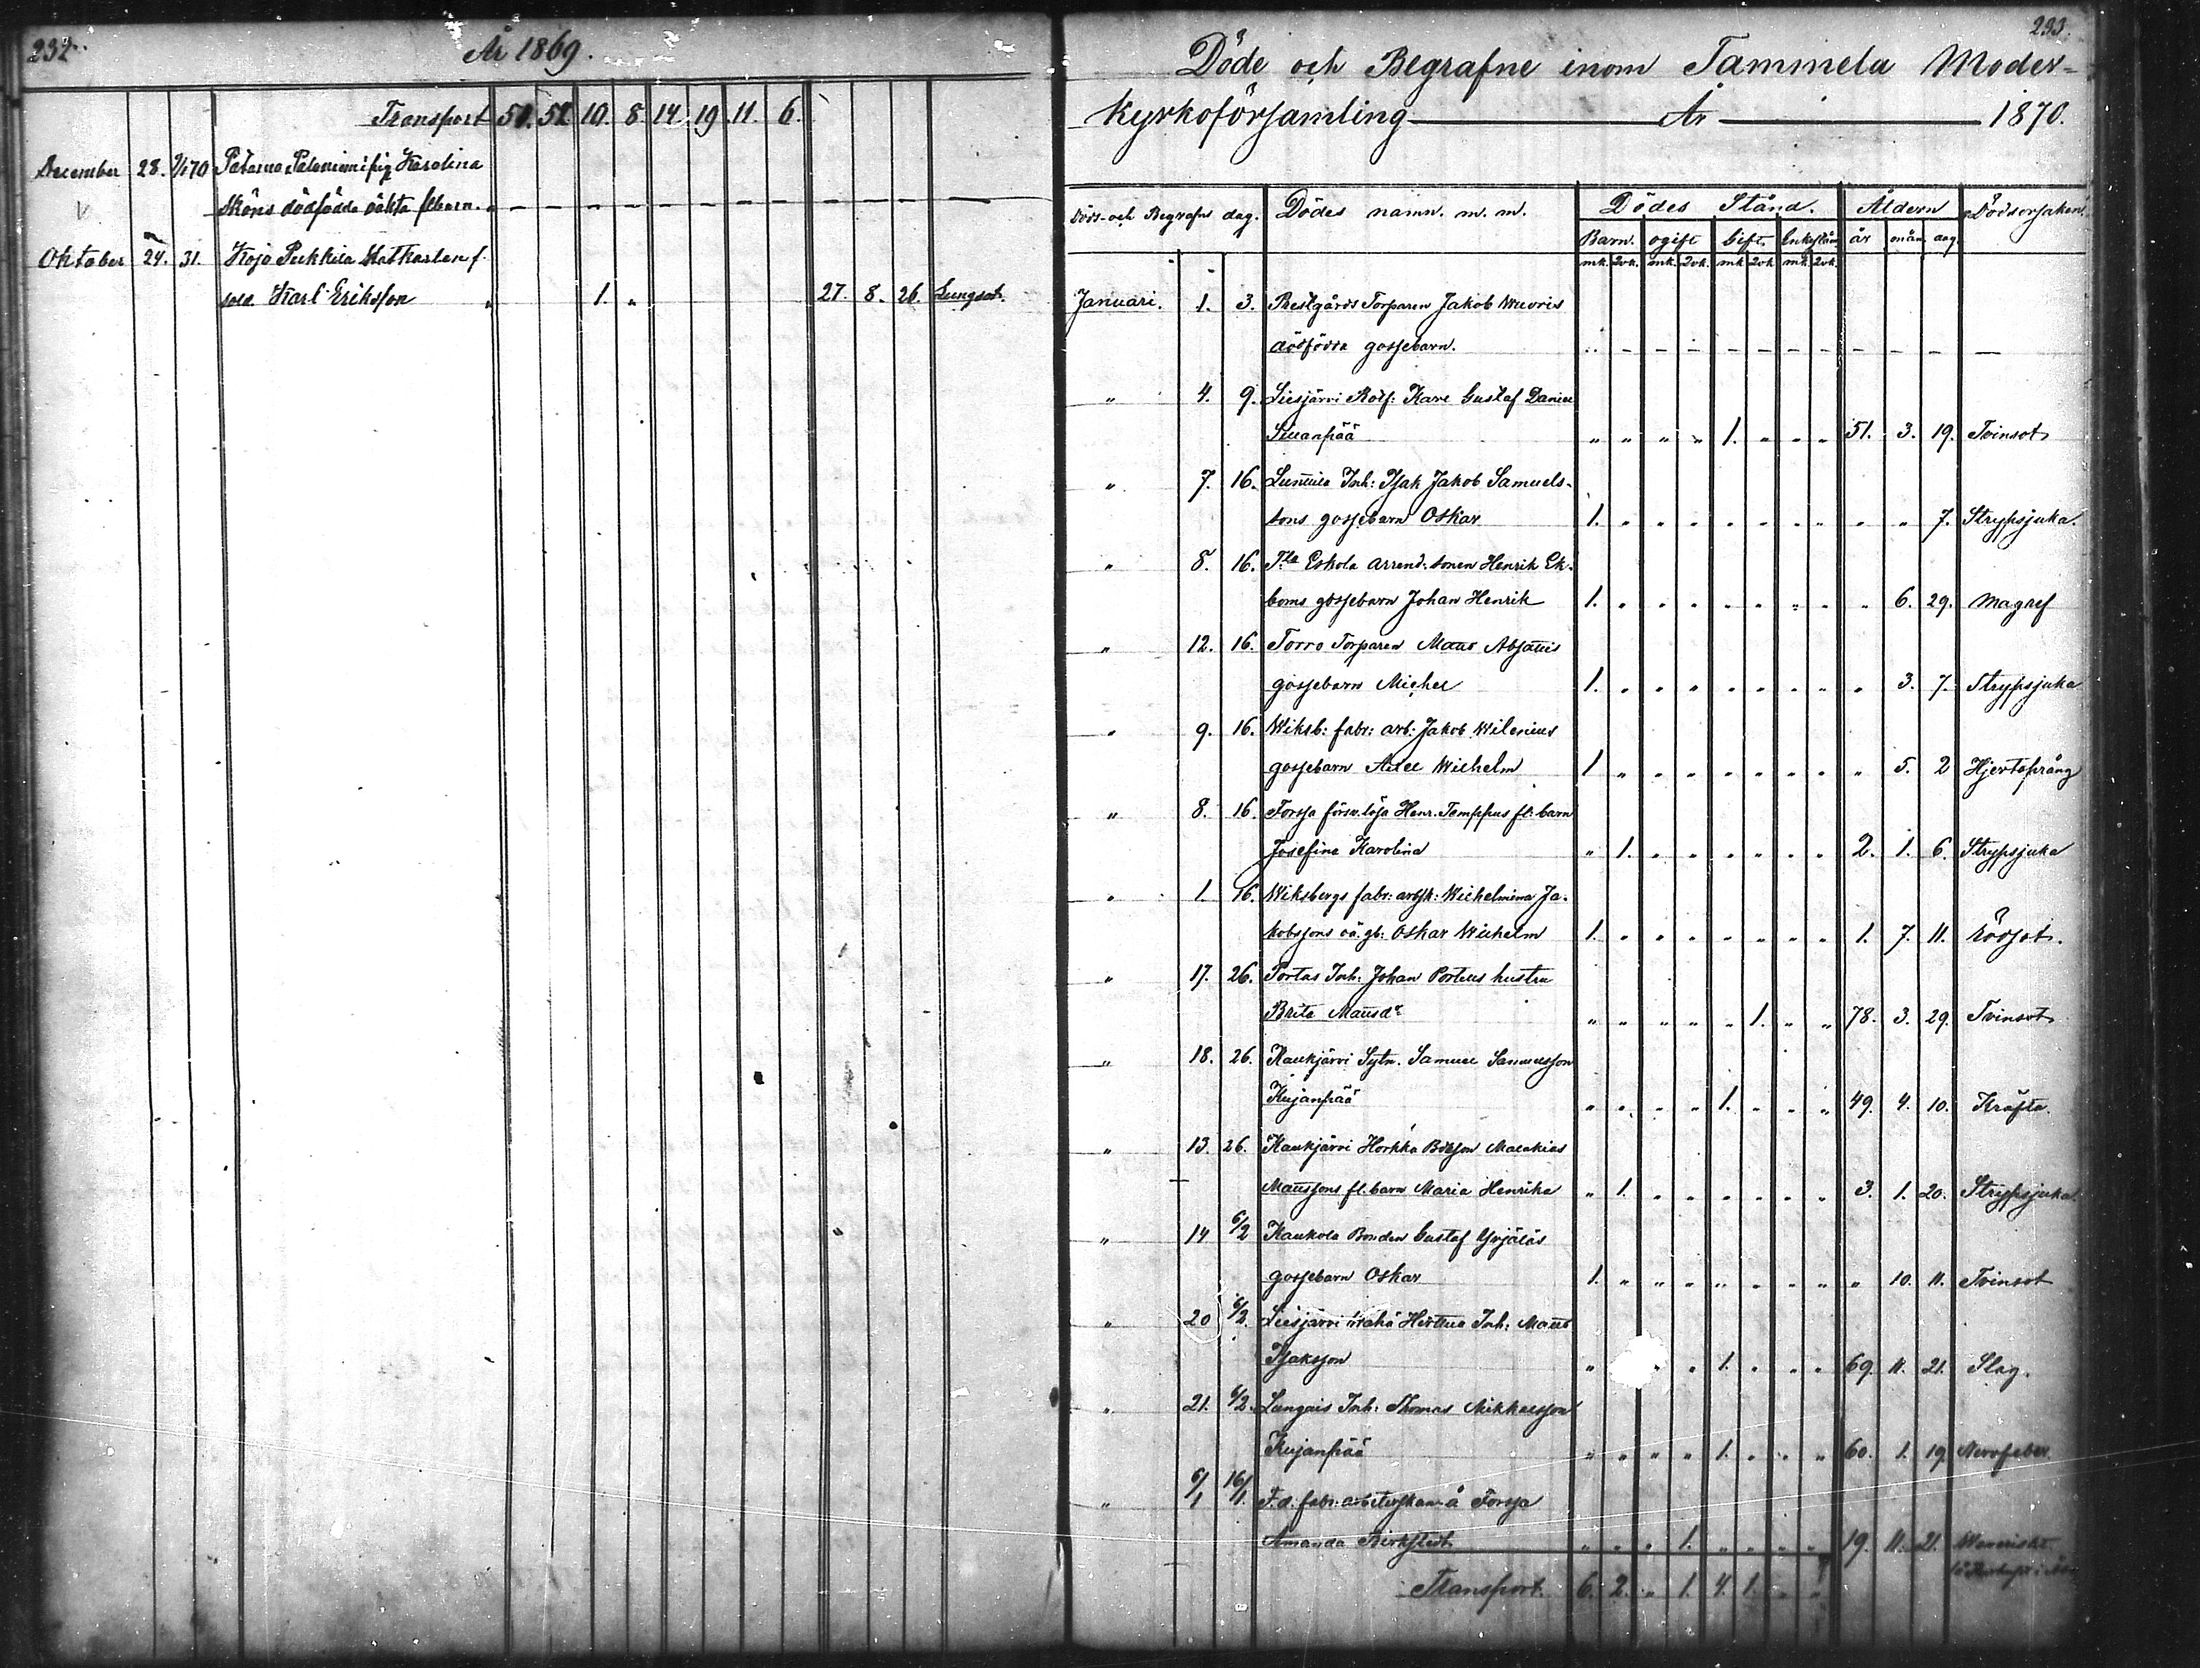 232.
År 1869.
Transport 51. 52. 10. 8. 14. 19. 11. 6.
December 28. 2/1 70 Karolina
Sköns dödfödda oäkta flbarn. " – – – – – – – – – – –
Oktober 24. 31. Kojo Pekkila Statkarlen f.
sold. Karl Eriksson " 1. " 27. 8. 26. Lungsot.
233.
Döde och Begrafne inom Tammela Moder=
Kyrkoförsamling År 1870.
Döds- och Begrafns dag. Dödes namn. m. m. Dödes Stånd. Åldern Dödsorsaken.
Barn. ogift Gift. Enkestånd år mån. dag.
mk. Qvk. mk. Qvk. mk Qvk mk. Qvk.
Januari. 1. 3. Prestgårds Torparen Jakob Wuoris
dödfödda gossebarn. " – – – – – – – – – – –
" 4. 9. Liesjärvi Rotf: Karl Gustaf Daniel
Sillanpää " " " " 1. " " " 51. 3. 19. Tvinsot
" 7. 16. Lunnila Inh: Isak Jakob Samuels-
sons gossebarn Oskar 1. " " " " " " " " " 7. Strypsjuka.
" 8. 16. Eskola arrend. sonen Henrik Ek-
boms gossebarn Johan Henrik 1. " " " " " " " " 6. 29. Magref
" 12. 16. Torro Torparen Mats
gossebarn Michel 1. " " " " " " " " 3. 7. Strypsjuka
" 9. 16. Wiksb: fabr: arb: Jakob Wilenius
gossebarn Axel Wilhelm 1 " " " " " " " " 5. 2 Hjertsprång
" 8. 16. Forssa försv.lösa Henr. Temppus fl: barn
Josefina Karolina " 1. " " " " " " 2. 1. 6. Strypsjuka
" 1. 16. Wiksbergs fabr: arbsk: Wilhelmina Ja-
kobssons oä. gb: Oskar Wilhelm 1. " " " " " " " 1. 7. 11. Rödsot.
" 17. 26. Portas Inh: Johan Portens hustru
Brita Matsdr " " " " " 1. " " 78. 3. 29. Tvinsot
" 18. 26. Kaukjärvi Sytn. Samuel Samuelsson
Kujanpää " " " " 1. " " " 49. 4. 10. Kräfta.
" 13. 26. Kaukjärvi Horkka Bdsson Malakias
Matssons fl. barn Maria Henrika " 1. " " " " " " 3. 1. 20. Strypsjuka
" 14 6/2 Kaukola Bonden Gustaf Yrjäläs
gossebarn Oskar 1. " " " " " " " " 10. 11. Tvinsot
" 20 6/2. Liesjärvi Inh: Mats
Isaksson " " " 1. " " " 69. 11. 21. Slag.
" 21. 6/2. Lungais Inh: Thomas Mikkelsson
Kujanpää " " " " 1. " " " 60. 1. 19. Nervfeber
" 6/1 16/1. F.d. fabr: arbeterskan å Forssa
Amanda Birkstedt " " " 1. " " " " 19. 11. 21.
Transport. 6. 2. " 1. 4. 1. " "